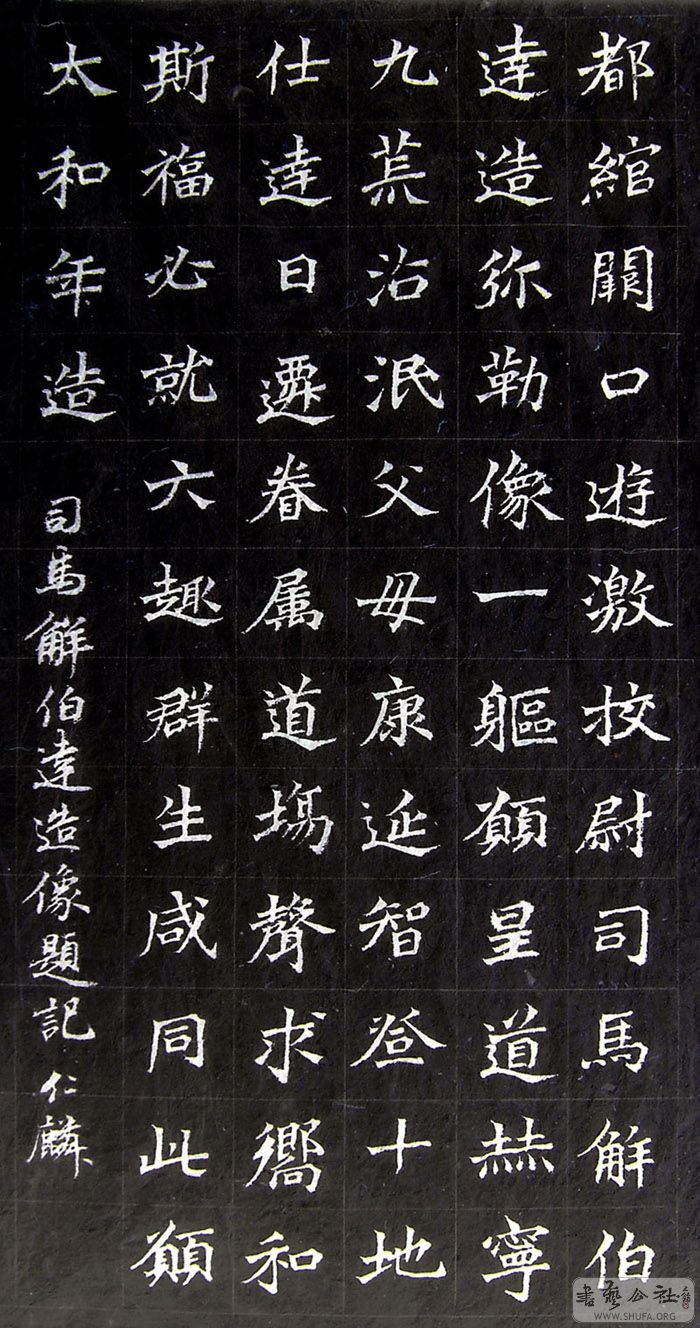 都綰闕口遊激校尉司馬解伯
達造弥勒像一軀願皇道赫寧
九荒沾泯父母康延智登十地
仕達日遷眷属道場聲求嚮和
斯福必就六趣群生咸同此願
太和年造
司馬解伯達造像題記 仁麟
書藝公社
WWW.SHUFA.ORG